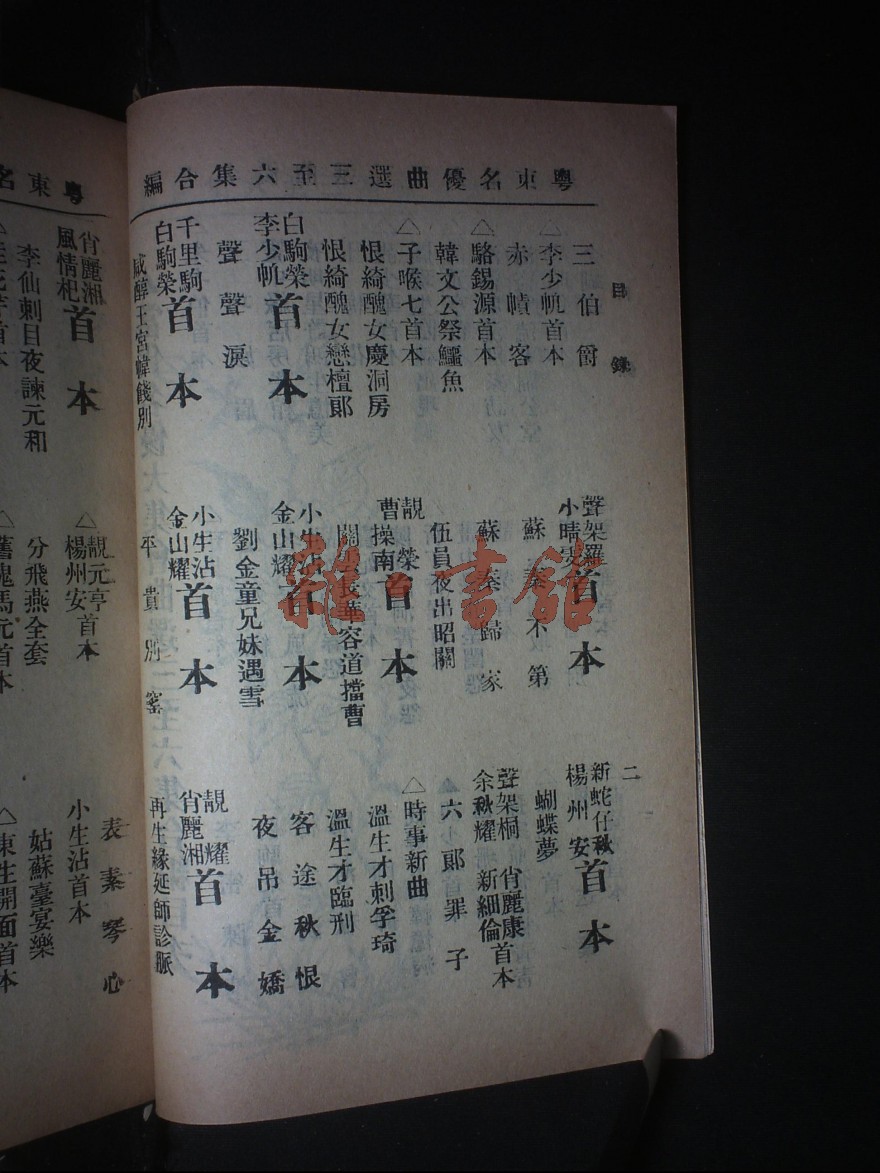 粵東名優曲選三至六集合編
目錄
二
三伯爵
△李少帆首本
赤幘客
△駱錫源首本
韓文公祭鱷魚
△子喉七首本
恨綺醜女慶洞房
恨綺醜女戀檀郞
白駒榮
李少帆
首本
聲聲淚
千里駒
白駒榮
首本
咸醇王宮幃餞別
聲架羅
首本
蘇秦不第
蘇秦歸家
伍員夜出昭關
靚榮
曹操南
首本
華容道擋曹
小生沾
金山耀
首本
劉金童兄妹遇雪
小生沾
金山耀
首本
平貴別窰
新蛇仔秋
楊州安
首本
蝴蝶夢
聲架桐 肖麗康
余秋耀 新細倫
首本
六郞罪子
△時事新曲
溫生才刺孚琦
溫生才臨刑
客途秋恨
夜吊金嬌
靚耀
肖麗湘
首本
再生緣延師診脈
粵東名
肖麗湘
風情杞
首本
李仙刺目夜諫元和
△靚元亨首本
楊州安
分飛燕全套
表素琴心
小生沾首本
姑蘇臺宴樂
△東生開面首本
雜·書館